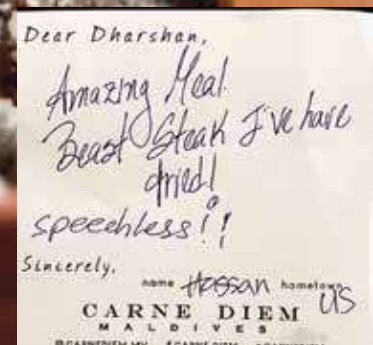 Dear Dharshan,
Amazing Meal
Beast Steak I've have
tried!
speechless!!
Sincerely,
name Hassan hometown US
CARNE DIEM
MALDIVES